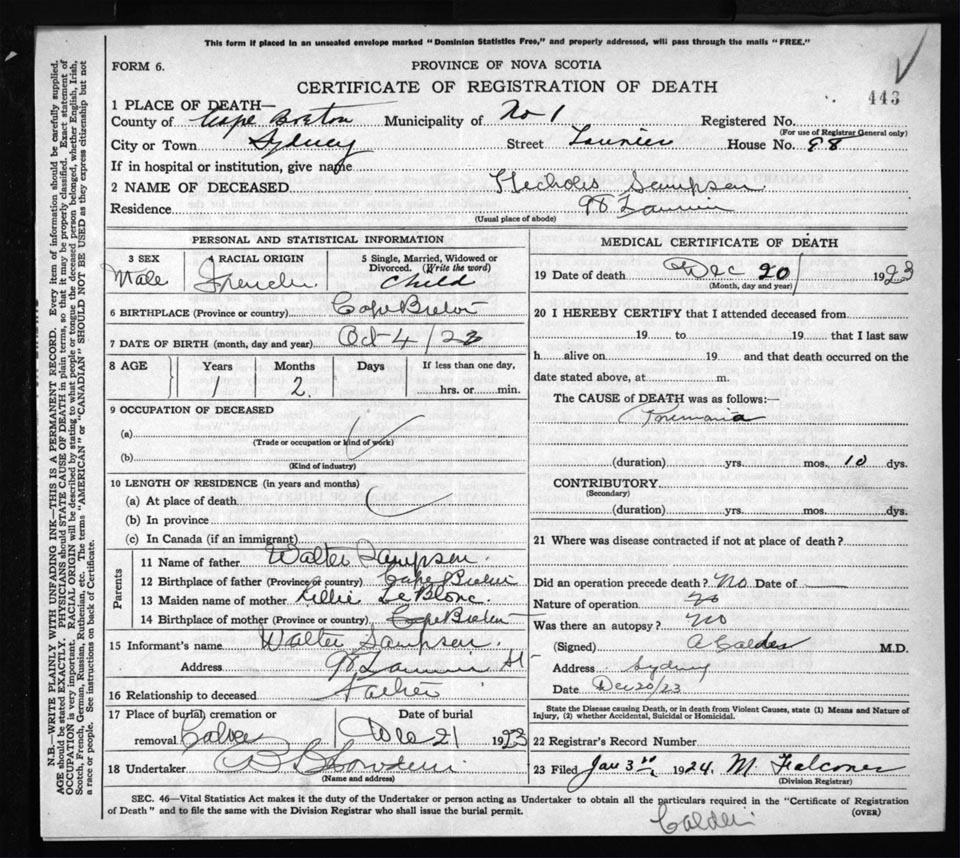 This form if placed in an unsealed envelope marked "Dominion Statistics Free," and properly addressed, will pass through the mails "FREE."
FORM 6.
PROVINCE OF NOVA SCOTIA
CERTIFICATE OF REGISTRATION OF DEATH
443
1 PLACE OF DEATH—
County of Cape Breton Municipality of No 1 Registered No.
(For use of Registrar General only)
City or Town Sydney Street House No. 98
If in hospital or institution, give name
2 NAME OF DECEASED Sampson
Residence 98
(Usual place of abode)
PERSONAL AND STATISTICAL INFORMATION
3 SEX 4 RACIAL ORIGIN 5 Single, Married, Widowed or Divorced. (Write the word)
Male French Child
6 BIRTHPLACE (Province or country) Cape Breton
7 DATE OF BIRTH (month, day and year) Oct 4 / 22
8 AGE Years Months Days If less than one day,
1 2 hrs. or min.
9 OCCUPATION OF DECEASED
(a)
(Trade or occupation or kind of work)
(b)
(Kind of industry)
10 LENGTH OF RESIDENCE (in years and months)
(a) At place of death
(b) In province
(c) In Canada (if an immigrant)
Parents
11 Name of father Walter Sampson
12 Birthplace of father (Province or country) Cape Breton
13 Maiden name of mother Lillie LeBlanc
14 Birthplace of mother (Province or country) Cape Breton
15 Informant's name Walter Sampson
Address 98 St
16 Relationship to deceased Father
17 Place of burial, cremation or removal Date of burial
Dec 21 1923
18 Undertaker
(Name and address)
MEDICAL CERTIFICATE OF DEATH
19 Date of death Dec 20 1923
(Month, day and year)
20 I HEREBY CERTIFY that I attended deceased from
19 to 19 that I last saw
h alive on 19 and that death occurred on the
date stated above, at m.
The CAUSE OF DEATH was as follows:—
(duration) yrs. mos. 10 dys.
CONTRIBUTORY
(Secondary)
(duration) yrs. mos. dys.
21 Where was disease contracted if not at place of death?
Did an operation precede death? No Date of
Nature of operation no
Was there an autopsy? no
(Signed) A Calder M.D.
Address Sydney
Date Dec 20/23
State the Disease causing Death, or in death from Violent Causes, state (1) Means and Nature of
Injury, (2) whether Accidental, Suicidal or Homicidal.
22 Registrar's Record Number
23 Filed Jan 3rd 1924. M Falconer
(Division Registrar)
SEC. 46—Vital Statistics Act makes it the duty of the Undertaker or person acting as Undertaker to obtain all the particulars required in the "Certificate of Registration
of Death" and to file the same with the Division Registrar who shall issue the burial permit.
(OVER)
N.B.—WRITE PLAINLY WITH UNFADING INK—THIS IS A PERMANENT RECORD. Every item of information should be carefully supplied.
AGE should be stated EXACTLY. PHYSICIANS should STATE CAUSE OF DEATH in plain terms, so that it may be properly classified. Exact statement of
OCCUPATION is very important. RACIAL ORIGIN will be described by stating to what people or tongue the deceased person belonged, whether English, Irish,
Scotch, French, German, Russian, Ruthenian, etc. The terms "AMERICAN" or "CANADIAN" SHOULD NOT BE USED as they express citizenship but not
a race or people. See instructions on back of Certificate.